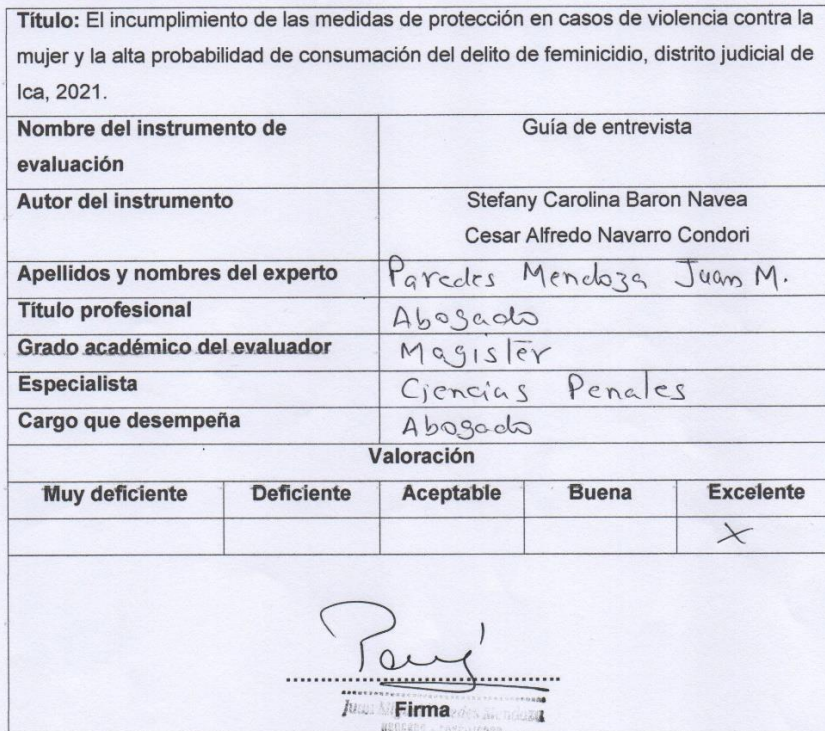 Título: El incumplimiento de las medidas de protección en casos de violencia contra la
mujer y la alta probabilidad de consumación del delito de feminicidio, distrito judicial de
Ica, 2021.
Nombre del instrumento de evaluación
Guía de entrevista
Autor del instrumento
Stefany Carolina Baron Navea
Cesar Alfredo Navarro Condori
Apellidos y nombres del experto Paredes Mendoza Juan M.
Título profesional Abogado
Grado académico del evaluador Magister
Especialista Ciencias Penales
Cargo que desempeña Abogado
Valoración
Muy deficiente Deficiente Aceptable Buena Excelente
X
Firma